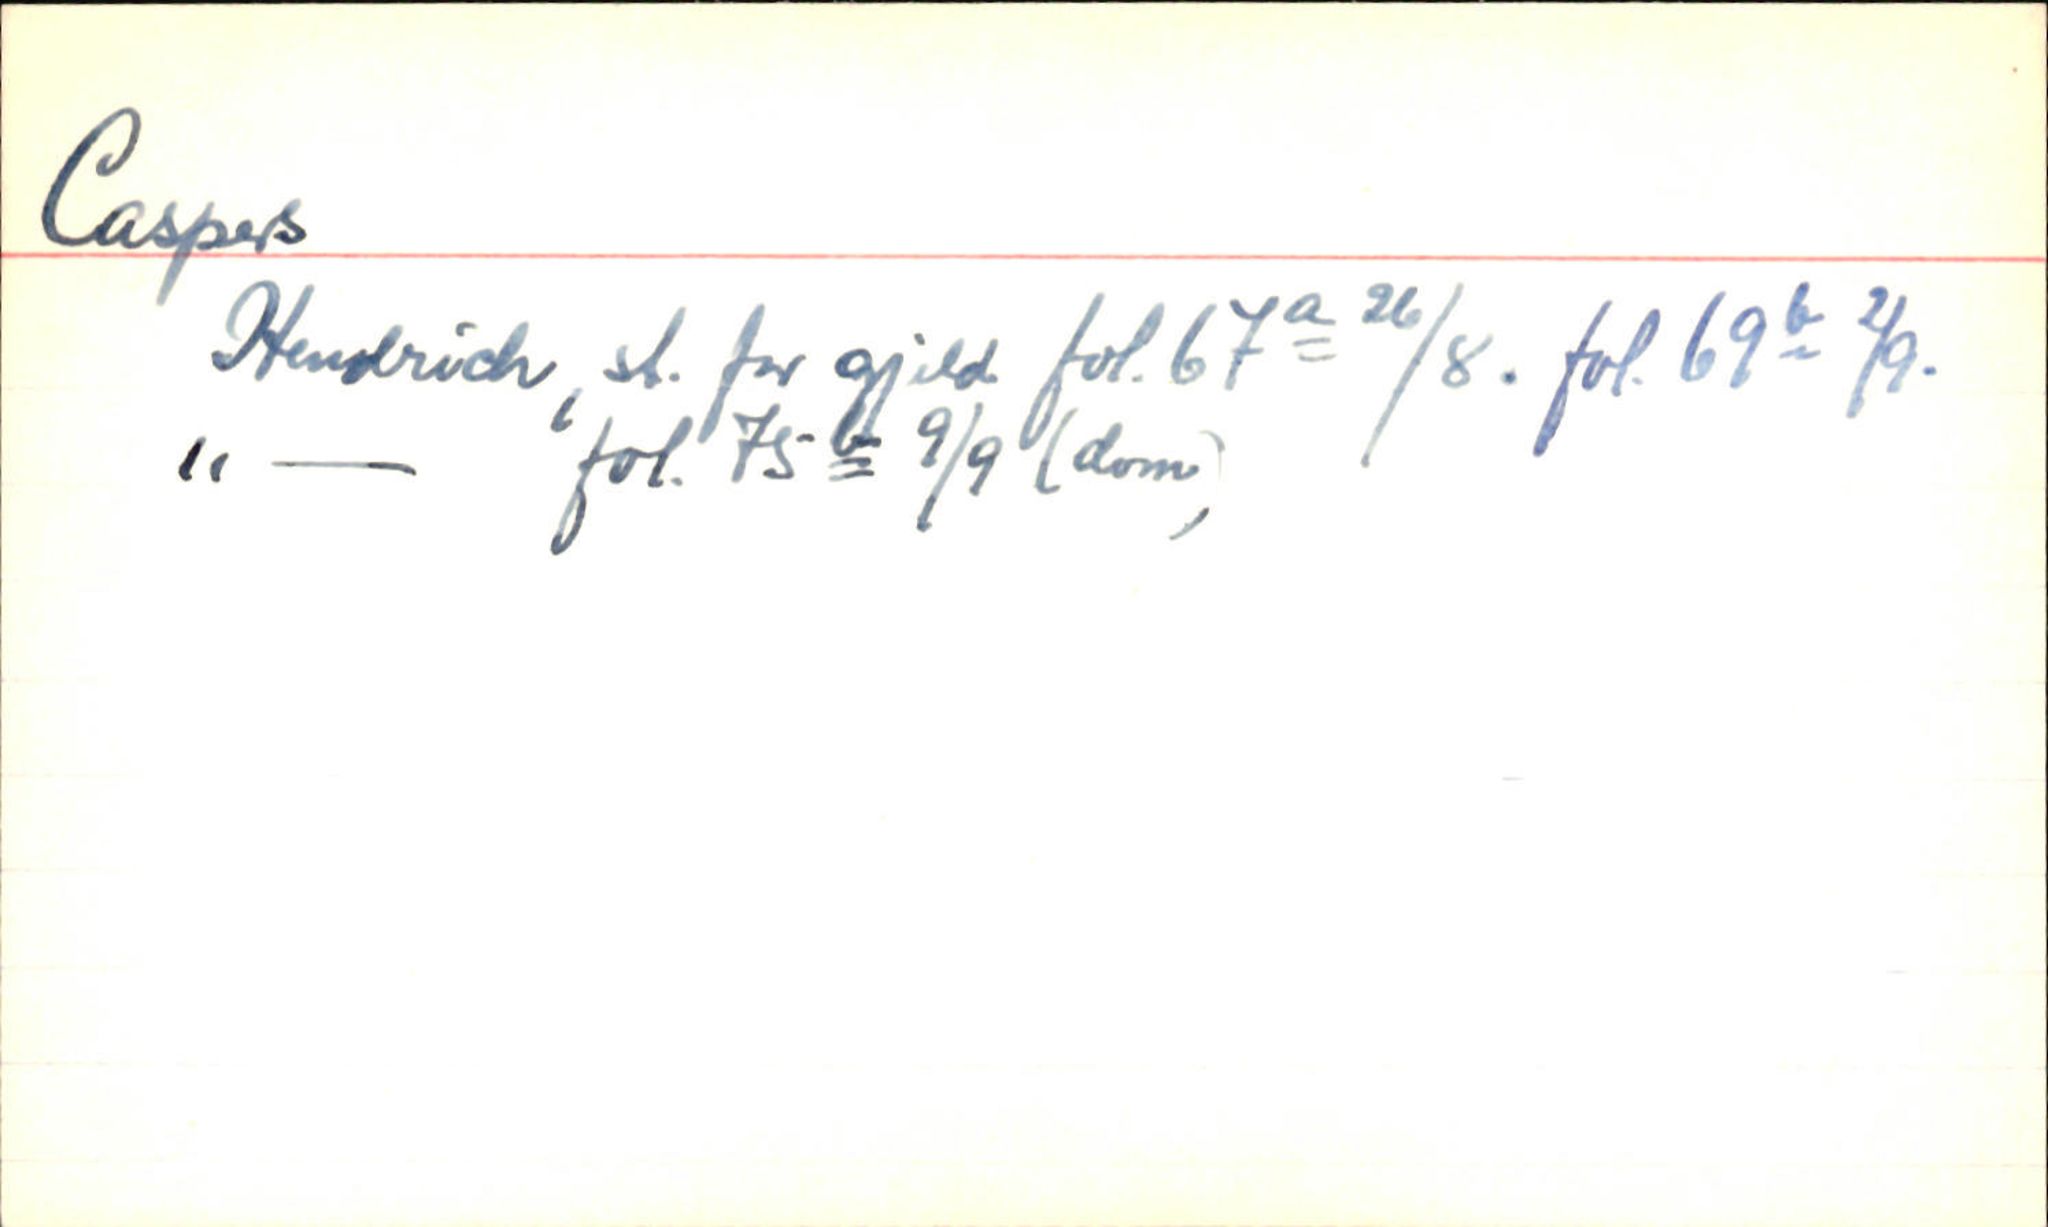 Caspers
Hendrich, st. for gjeld fol. 67a 26/8. fol. 69b 2/9.
" — fol. 75b 9/9 (dom)